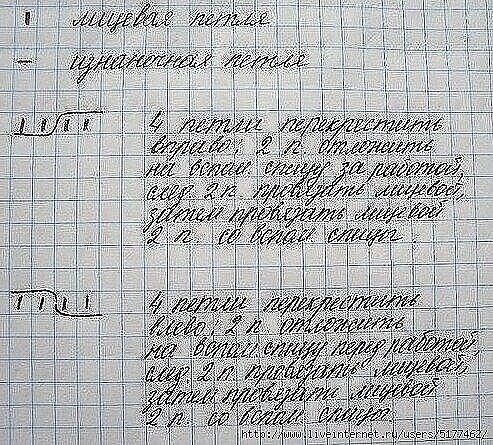 лицевая петля
изнаночная петля
4 петли перекрестить
вправо: 2 п. отложить
на вспом. спицу за работой,
след. 2 п. провязать лицевой,
затем провязать лицевой
2 п. со вспом. спицы.
4 петли перекрестить
влево: 2 п. отложить
на вспом. спицу перед работой,
след. 2 п. провязать лицевой,
затем провязать лицевой
2 п. со вспом. спицы
http://www.liveinternet.ru/users/5177462/